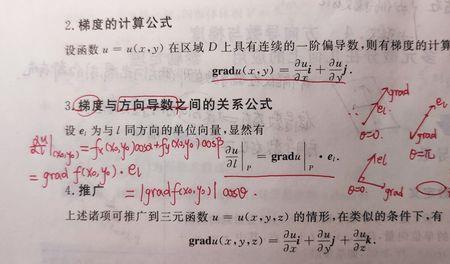 2.梯度的计算公式
设函数 u = u(x,y) 在区域 D 上具有连续的一阶偏导数,则有梯度的计算
gradu(x,y) = ∂u/∂x i + ∂u/∂y j.
3.梯度与方向导数之间的关系公式
设 eₗ 为与 l 同方向的单位向量,显然有
∂u/∂l|(x₀,y₀) = fx(x₀,y₀)cosα+fy(x₀,y₀)cosβ
∂u/∂l|P = gradu|P · eₗ.
= grad f(x₀,y₀) · eₗ
= |grad f(x₀,y₀)| cosθ.
grad
eₗ
θ=0.
grad
eₗ
θ=π
eₗ
grad
4.推广
上述诸项可推广到三元函数 u = u(x,y,z) 的情形,在类似的条件下,有
gradu(x,y,z) = ∂u/∂x i + ∂u/∂y j + ∂u/∂z k.